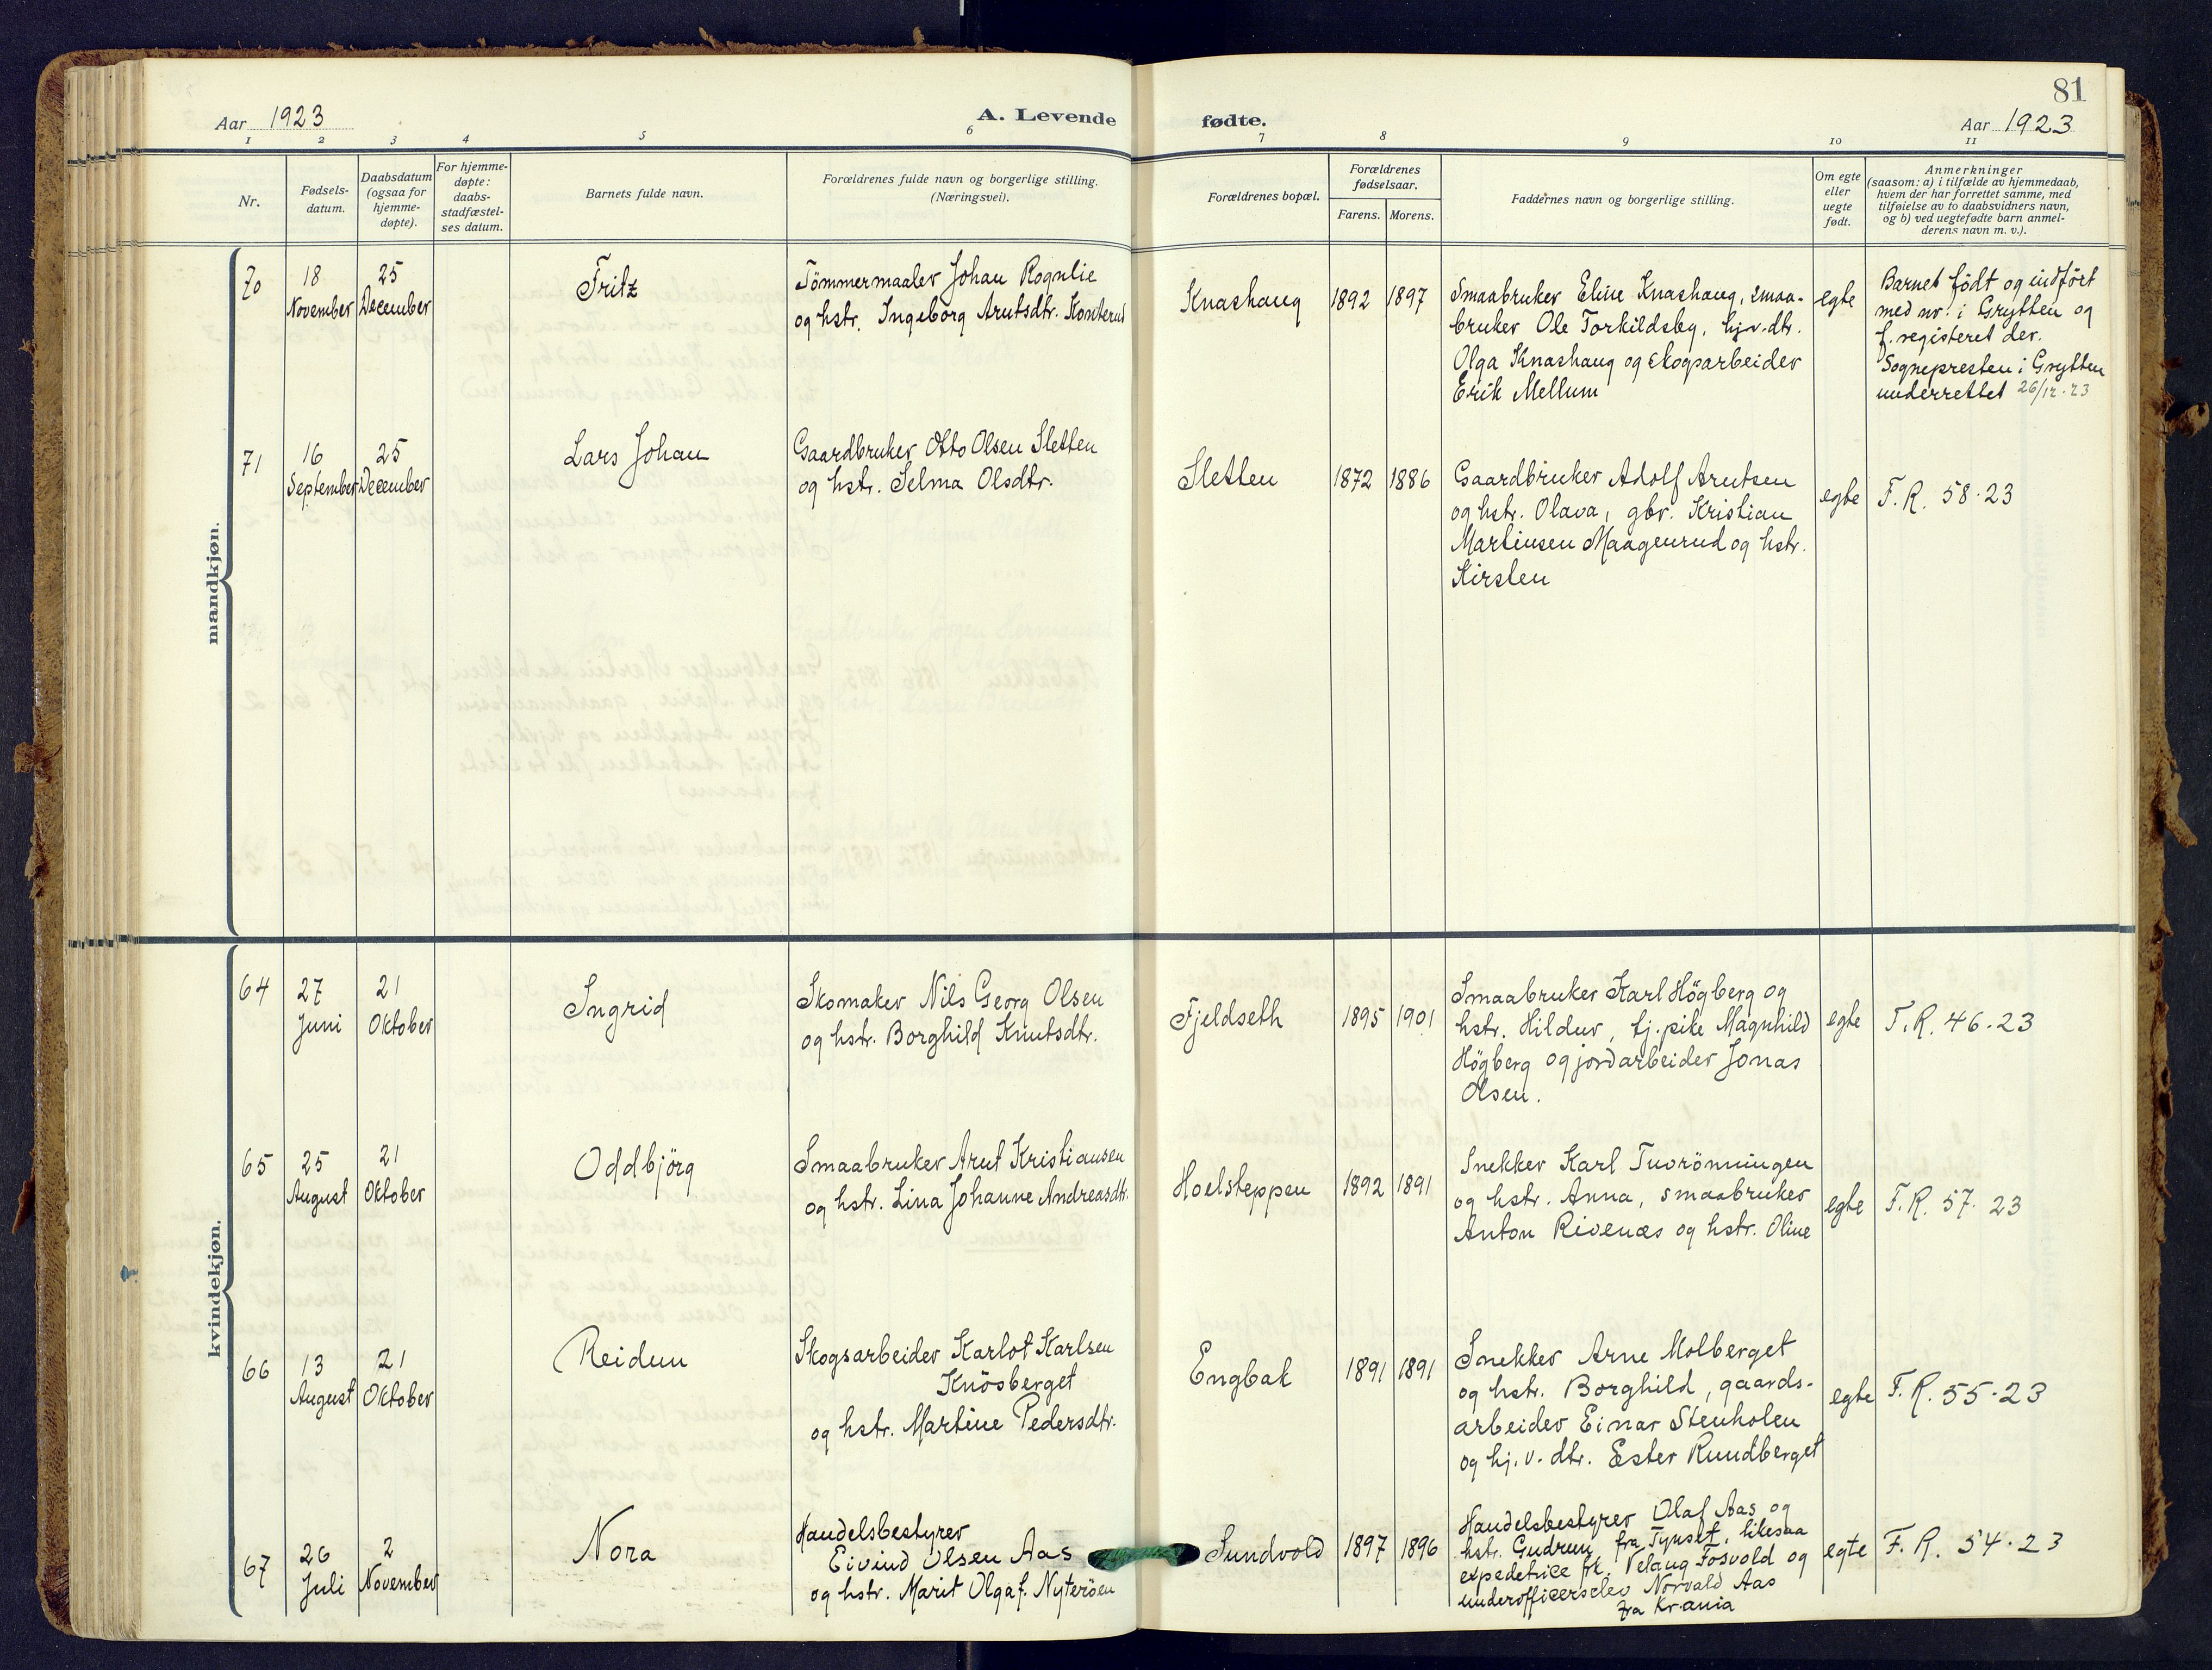 81
Aar 1923
A. Levende
fødte.
Aar 1923
1 2 3 4 5 6 7 8 9 10 11
Nr.
Fødsels-
datum.
Daabsdatum
(ogsaa for
hjemme-
døpte).
For hjemme-
døpte:
daabs-
stadfæstel-
ses datum.
Barnets fulde navn.
Forældrenes fulde navn og borgerlige stilling.
(Næringsvei).
Forældrenes bopæl.
Forældrenes
fødselsaar.
Farens. Morens.
Faddernes navn og borgerlige stilling.
Om egte
eller
uegte
født.
Anmerkninger
(saasom: a) i tilfælde av hjemmedaab,
hvem der har forrettet samme, med
tilføielse av to daabsvidners navn,
og b) ved uegtefødte barn anmel-
derens navn m. v.).
mandkjøn.
70
18
November
25
December
Fritz
Tömmermaaler Johan Rognlie
og hstr. Ingeborg Arntsdtr. Konterud
Knashaug
1892 1897
Smaabruker Eline Knashaug, smaa-
bruker Ole Torkildsby, hjv. dtr.
Olga Knashaug og skogsarbeider
Erik Mellum
egte
Barnet født og indført
med nr: i Grytten og
f. registeret der.
Sognepresten i Grytten
underrettet 26/12-23
71
16
September
25
December
Lars Johan
Gaardbruker Otto Olsen Sletten
og hstr. Selma Olsdtr.
Sletten
1872 1886
Gaardbruker Adolf Arntsen
og hstr. Olava, gbr. Kristian
Martinsen Maagenrud og hstr.
Kirsten
egte
F. R. 58-23
kvindekjøn.
64
27
Juni
21
Oktober
Ingrid
Skomaker Nils Georg Olsen
og hstr. Borghild Knutsdtr.
Fjeldseth
1895 1901
Smaabruker Karl Högberg og
hstr. Hildur, tj.pike Magnhild
Högberg og jordarbeider Jonas
Olsen.
egte
F. R. 46-23
65
25
August
21
Oktober
Oddbjörg
Smaabruker Arnt Kristiansen
og hstr. Lina Johanne Andreasdtr.
Hoelsteppen
1892 1891
Snekker Karl Tuvrönningen
og hstr. Anna, smaabruker
Anton Rivenæs og hstr. Oline
egte
F. R. 57-23
66
13
August
21
Oktober
Reidun
Skogsarbeider Karlot Karlsen
Knösberget
og hstr. Martine Pedersdtr.
Engbak
1891 1891
Snekker Arne Molberget
og hstr. Borghild, gaards-
arbeider Einar Stenholen
og hj. v. dtr. Ester Rundberget
egte
F. R. 55-23
67
26
Juli
2
November
Nora
Handelsbestyrer
Eivind Olsen Aas
og hstr. Marit Olga f. Nyteröen
Sundvold
1897 1896
Handelsbestyrer Olaf Aas og
hstr. Gudrun, fra Tynset, likesaa
expeditrice frk. Velaug Fosvold og
underofficerselev Norvald Aas
fra Kr.ania
egte
F. R. 54-23